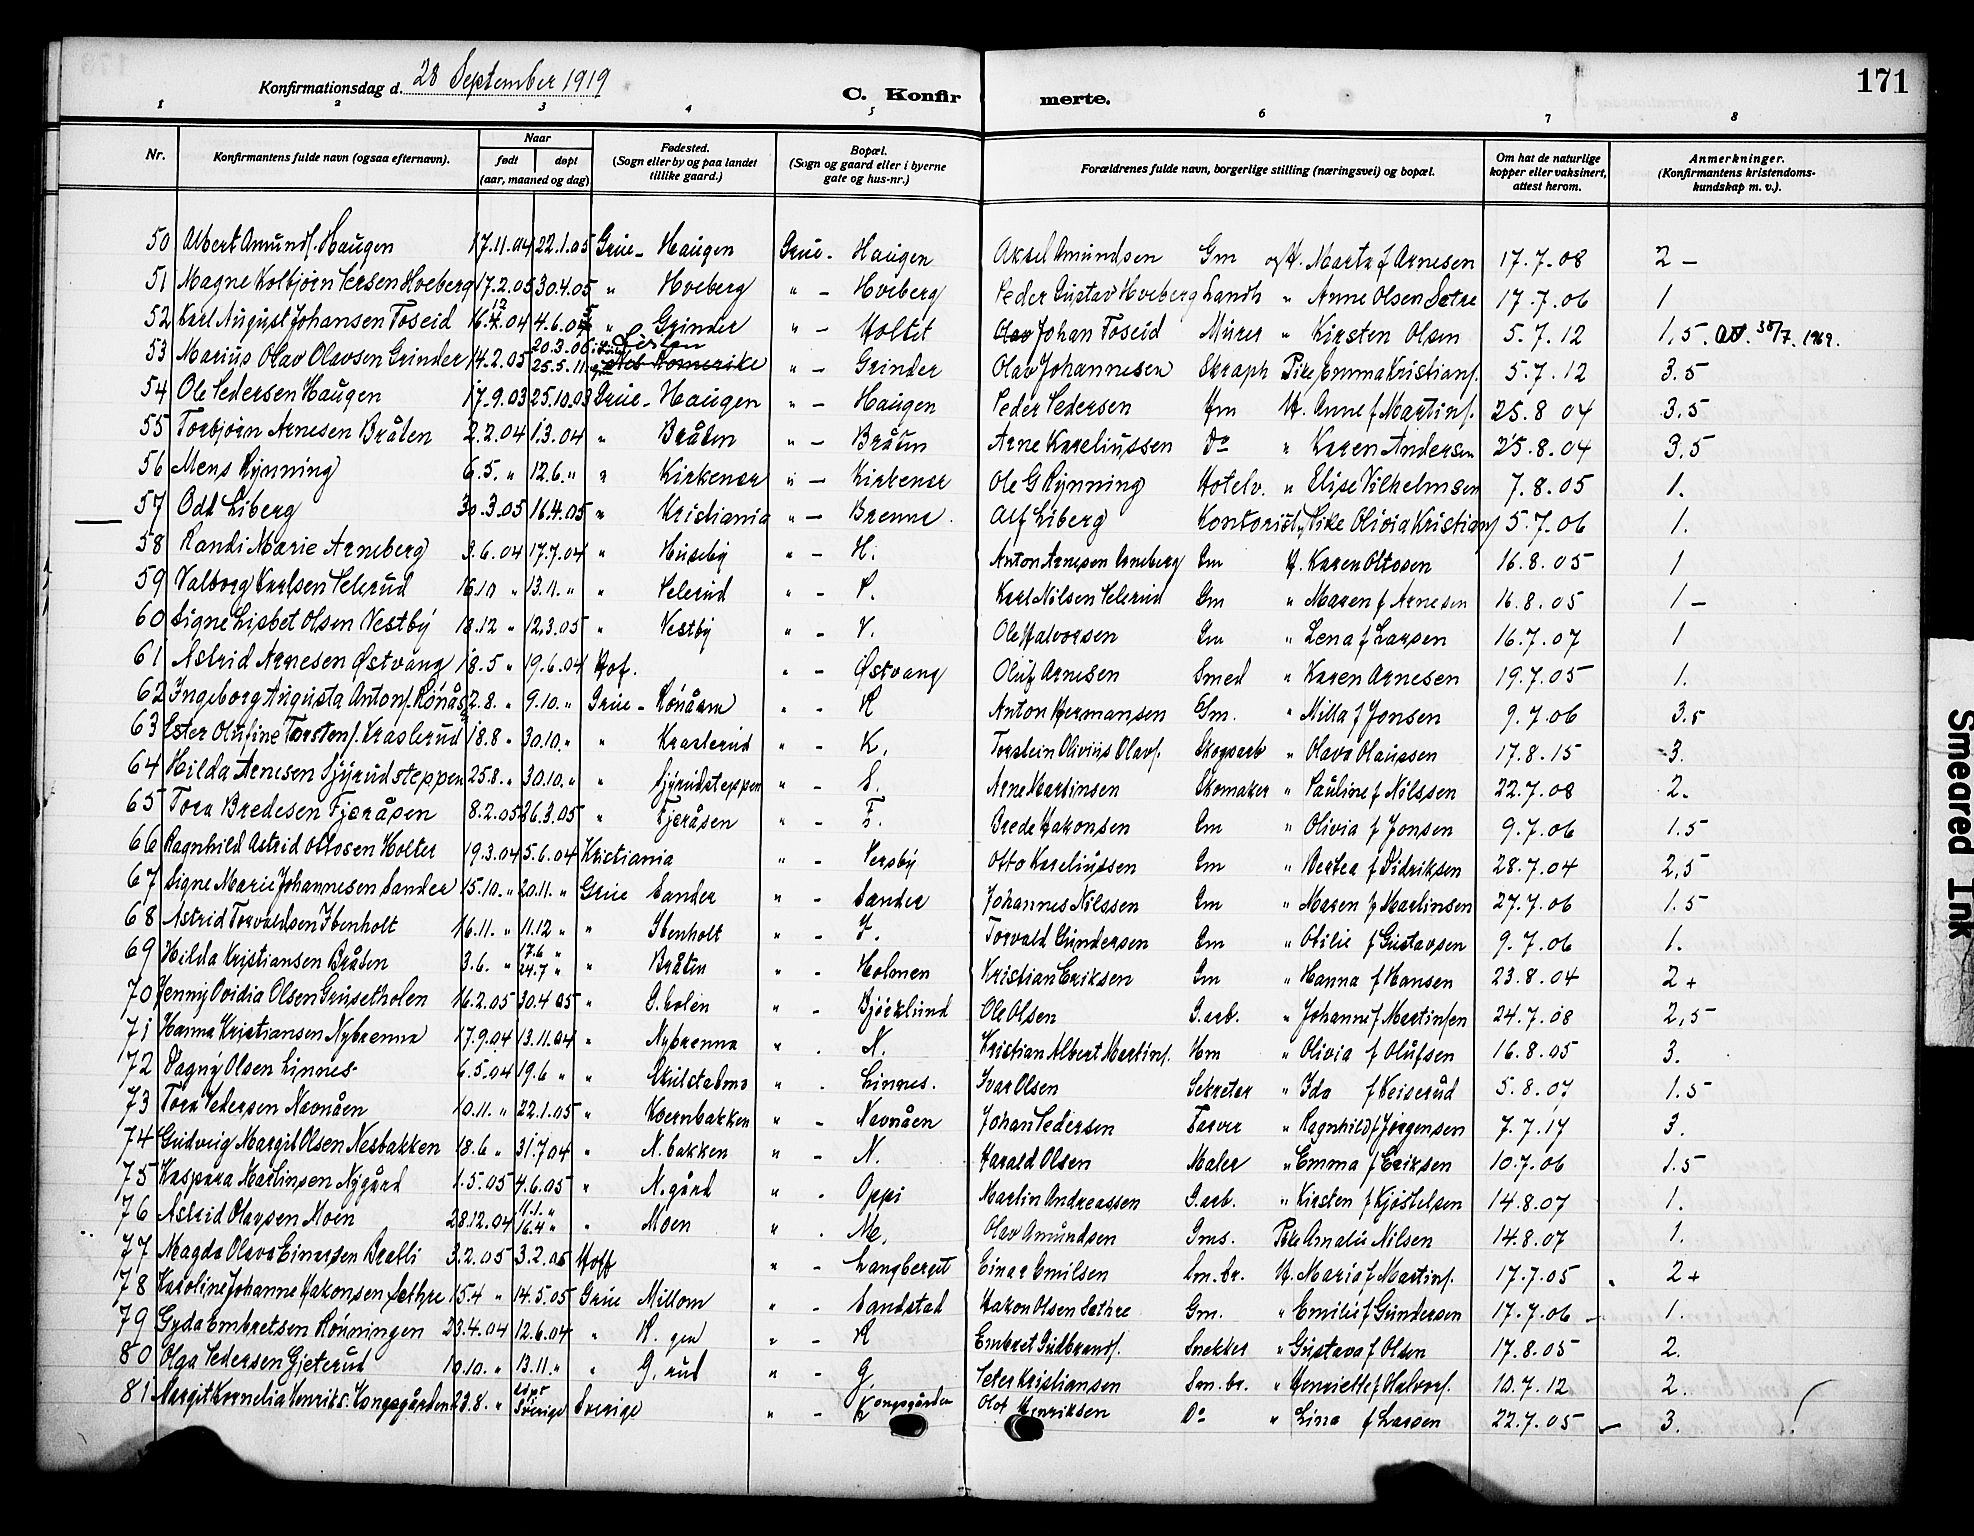 171
Konfirmationsdag d. 28 September 1919
C. Konfir merte.
1 2 3 4 5 6 7 8
Nr. Konfirmantens fulde navn (ogsaa efternavn). Naar født døpt (aar, maaned og dag) Fødested. (Sogn eller by og paa landet tillike gaard.) Bopæl. (Sogn og gaard eller i byerne gate og hus-nr.) Forældrenes fulde navn, borgerlige stilling (næringsvei) og bopæl. Om hat de naturlige kopper eller vaksinert, attest herom. Anmerkninger. (Konfirmantens kristendoms-kundskap m. v.).
50 Albert Amunds. Haugen 17.11.04 22.1.05 Grue - Haugen Grue - Haugen Aksel Amundsen Gm og H. Marta f Arnesen 17.7.08 2 -
51 Magne Kolbjørn Persen Hveberg 17.2.05 30.4.05 " Hveberg " - Hveberg Peder Gustav Hveberg Landh " Anne Olsen Sætre 17.7.06 1
52 Karl August Johansen Toseid 16.12.04 4.6.05 " Grinder " - Holtet Johan Toseid Murer " Kirsten Olsen 5.7.12 1,5. 30/7. 1969.
53 Marius Olav Olavsen Grinder 14.2.05 20.3.06 25.5.11 Nes Romerike " - Grinder Olav Johannesen Skraph Pike Emma Kristians. 5.7.12 3.5
54 Ole Pedersen Haugen 17.9.03 25.10.03 Grue - Haugen " - Haugen Peder Pedersen Hm H. Anne f Martins. 25.8 04 3.5
55 Torbjørn Arnesen Bråten 2.2.04 1.3.04 " Bråten " - Bråten Arne Kareliussen Do " Karen Andersen 25.8.04 3.5
56 Mens Rynning 6.5. " 12.6. " " Kirkenær " - Kirkenær Ole G Rynning Hotelv. " Elise Vilhelmsen 7.8.05 1.
57 Odd Liberg 30.3.05 16.4.05 " Kristiania " - Brenna. Alf Liberg Kontorist Pike Olivia Kristians 5.7.06 1.
58 Randi Marie Arneberg 3.6.04 17.7.04 " Huseby " - H. Anton Arnesen Arneberg Gm H. Karen Ottosen 16.8.05 1
59 Valborg Karlsen Pelerud 16.10 " 13.11. " " Pelerud " - P. Karl Nilsen Pelerud Gm " Maren f Arnesen 16.8.05 1 -
60 Signe Lisbet Olsen Vestby 18.12 " 12.3.05 " Vestby " - V. Ole Halvorsen Gm " Lena f Larsen 16.7.07 1
61 Astrid Arnesen Østvang 18.5 " 19.6.04 Hof. " - Østvang Oluf Arnesen Smed " Karen Arnesen 19.7.05 1.
62 Ingeborg Augusta Antons. Rönåsen 2.8. " 9.10. " Grue - Rönåsen " - R Anton Hermansen Gm. " Milla f Jonsen 9.7.06 3.5
63 Ester Olufine Torstens. Kraslerud 18.8 " 30.10. " " Kraslerud " - K. Torstein Olivius Olavs. Skogsarb " Olava Olaussen 17.8.15 3.
64 Hilda Arnesen Sjyrudsteppen 25.8. " 30.10. " " Sjyrudsteppen " - S. Arne Martinsen Skomaker " Pauline f Nilssen 22.7.08 2.
65 Tora Bredesen Fjeråsen 8.2.05 26.3.05 " Fjeråsen " - F. Brede Hakonsen Gm " Olivia f Jonsen 9.7.06 1.5
66 Ragnhild Astrid Ottosen Holter 19.3.04 5.6.04 Kristiania " - Persby Otto Kareliussen Gm " Bertea f Didriksen 28.7.04 2,5
67 Signe Marie Johannesen Sander 15.10. " 20.11. " Grue Sander " - Sander Johannes Nilssen Gm " Maren f Martinsen 27.7.06 1.5
68 Astrid Torvaldsen Ibenholt 16.11. " 11.12 " " Ibenholt " - I. Torvald Gundersen Gm " Otilie f Gustavsen 9.7.06 1.
69 Hilda Kristiansen Bråten 3.6. " 17.6 " 24.7 " " Bråten " - Holmen Kristian Eriksen Gm " Hanna f Hansen 23.8.04 2 +
70 Jenny Ovidia Olsen Grusetholen 16.2.05 30.4 05 " G.holen " - Bjørklund Ole Olsen G.arb. " Johanne f Martinsen 24.7.08 2,5
71 Hanna Kristiansen Nybrenna 17.9.04 13.11.04 " Nybrenna " - N. Kristian Albert Martins. Hm " Olivia f Olufsen 16.8.05 3.
72 Dagny Olsen Linnes 6.5.04 19.6 " " Skulstadmo " - Linnes. Ivar Olsen Sekretær " Ida f Keiserud 5.8.07 1.5
73 Tora Pedersen Navnåen 10.11. " 22.1.05 " Kvernbakken " - Navnåen Johan Pedersen Farver " Ragnhild f Jørgensen 7.7.17 3.
74 Gudveig Margit Olsen Nesbakken 18.6 " 31.7.04 " N.bakken " - N. Harald Olsen Maler " Emma f Eriksen 10.7.06 1.5
75 Kaspara Martinsen Nygård 1.5.05 4.6.05 " N.gård " - Oppi Martin Andreassen G.arb. " Kirsten f Kjøstelsen 14.8.07 1.
76 Astrid Olavsen Moen 28.12.04 11.1. " 16.4 " " Moen " - M. Olav Amundsen Gms. Pike Amalie Nilsen 14.8.07 1.
77 Magda Olava Einarsen Bratli 3.2.05 3.2.06 Hoff " - Langberget Einar Emilsen Sm.br. H. Maria f Martins. 17.7.05 2 +
78 Karoline Johanne Hakonsen Sæthre 15.4 " 14.5.05 Grue Millom " - Sandstad Hakon Olsen Sæthre Gm. " Emilie f Gundersen 17.7.06 1.
79 Gyda Embretsen Rønningen 23.4.04 12.6.04 " R.gen " - R Embret Gudbrands. Snekker " Gustava f Olsen 17.8.05 2.
80 Olga Pedersen Gjeterud 10.10. " 13.11. " " G.rud " - G. Peter Kristiansen Sm.br. " Henriette f Halvors. 10.7.12 2.
81 Margit Kornelia Henriks. Kongsgården 23.8. " Sverige Sverige " - Kongsgården Olof Henriksen Do " Lina f Larsen 22.7.05 - 3.
Smeared Ink